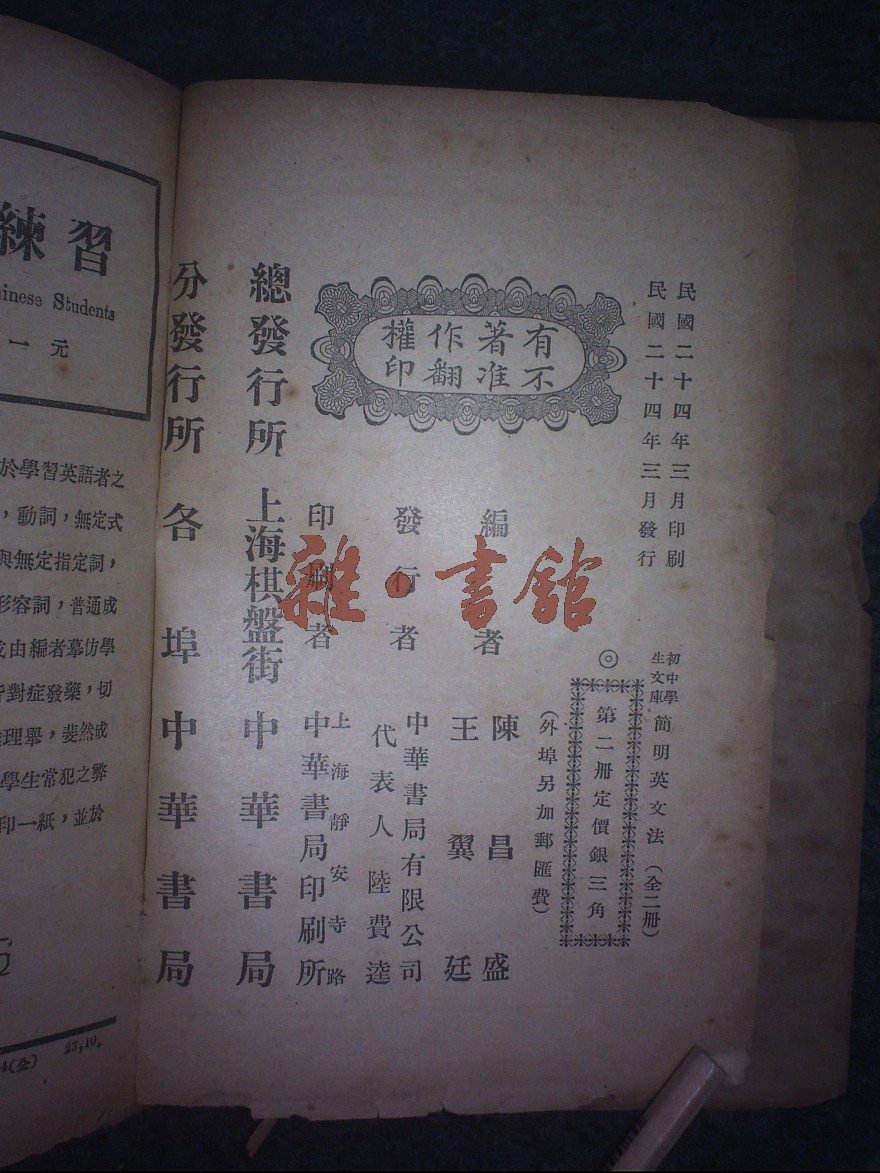 民國二十四年三月印刷
民國二十四年三月發行
初中學
生文庫
簡明英文法（全二冊）
◎
第二冊定價銀三角
（外埠另加郵匯費）
有不
著准
作翻
權印
編者
陳昌盛
王翼廷
發行者
中華書局有限公司
代表人 陸費逵
印刷者
上海靜安寺路
中華書局印刷所
總發行所 上海棋盤街 中華書局
分發行所 各埠中華書局
雜·書館
練習
inese Students
一元
於學習英語者之
，動詞，無定式
與無定指定詞，
形容詞，普通成
由編者摹仿學
對症發藥，切
理舉，斐然成
學生常犯之弊
印一紙，並於
4(全) 23,10.